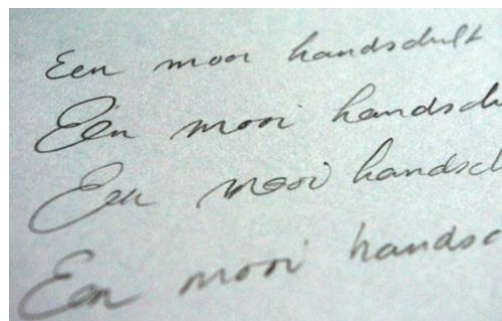 Een mooi handschrift
Een mooi handsch
Een mooi handsch
Een mooi handsc